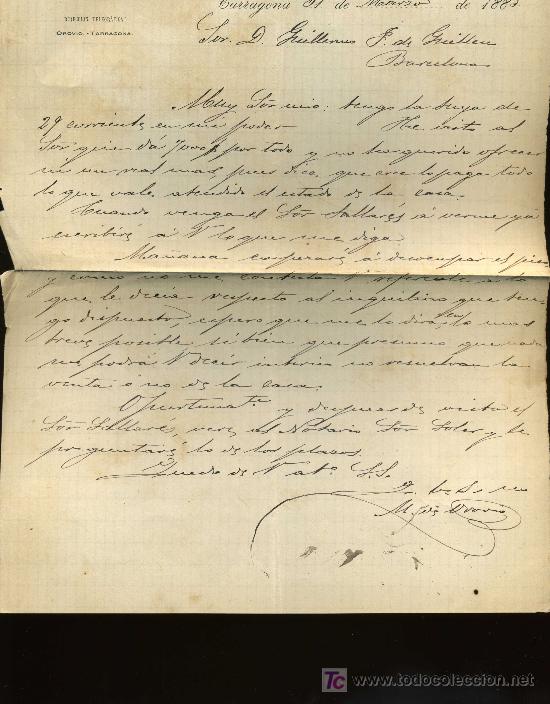 DIRECCIÓN TELEGRÁFICA
OROVIO.-TARRAGONA.
Tarragona 31 de Marzo de 188
Sor. D. Guillermo F. de Guillen
Barcelona
Muy Sor mio: tengo la suya de
29 corriente en mi poder He visto al
Sor que dá por todo y no ha querido ofrecer
ni un real mas, pues dice, que cree lo paga todo
lo que vale, atendido el estado de la casa.
Cuando venga el Sor Sallarés á verme ya
escribiré á V lo que me diga.
Mañana empezará á desocupar el piso
y como no me contesta V referente a lo
que le decia respecto al inquilino que ten
go dispuesto, espero que me lo dirá lo mas
breve posible si bien que presumo que nada
me podrá V decir interin no resuelvan la
venta o no de la casa.
Oportunate y despues de visto el
Sor Sallarés, veré al Notario Sor Soler y le
preguntaré lo de los plazos.
Quedo de V ato S.S.
M. de Orovio
TC www.todocoleccion.net